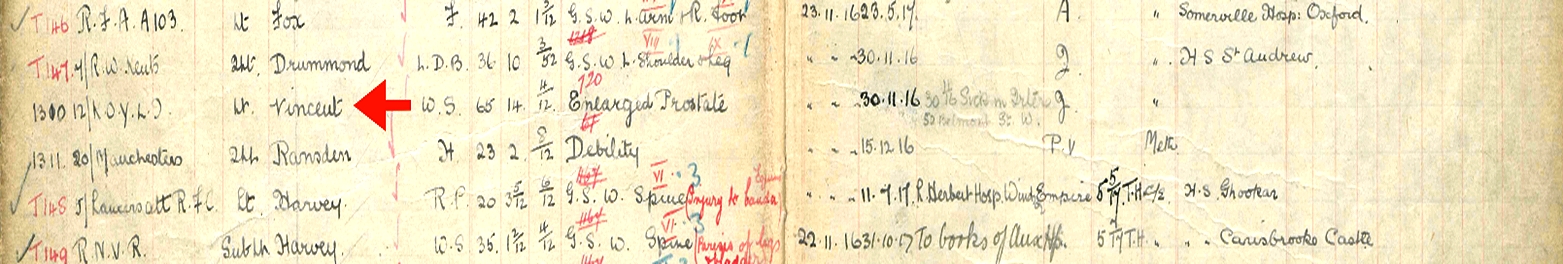 T146 R.F.A. A103. Lt Fox F. 42 2 1 3/12 G.S.W. L. Arm & R. Foot 23.11.16 23.5.17. A. " Somerville Hosp: Oxford.
T147 7/R.W. Kents 2Lt. Drummond L.D.B. 36 10 3/52 G.S.W. L. Shoulder & leg " " " 30.11.16 J. " H S St Andrew.
1300 12/K.O.Y.L.I. Lt. Vincent W.S. 65 14. 4/12. Enlarged Prostate " " " 30.11.16 J. "
52 Belmont St. W.
1311. 20/Manchesters 2Lt Ransden H. 23 2. 8/12 Debility " " " 15.12.16 P.V Meth.
T148 5/Lancers att R.F.C. Lt. Harvey. R.P. 20 3 5/12 6/12 G.S.W. Spine (Injury to " " " 11.7.17 R. Herbert Hosp. Empire 5/7 T.H. H.S Ghookar
T149 R.N.V.R. SubLt Harvey W.S 35. 1 2/12 4/12 G.S.W. Spine (Paresis of legs 22.11.16 31.10.17 To books of Aux Hp. 5/7 T.H. " " " Carisbrooke Castle